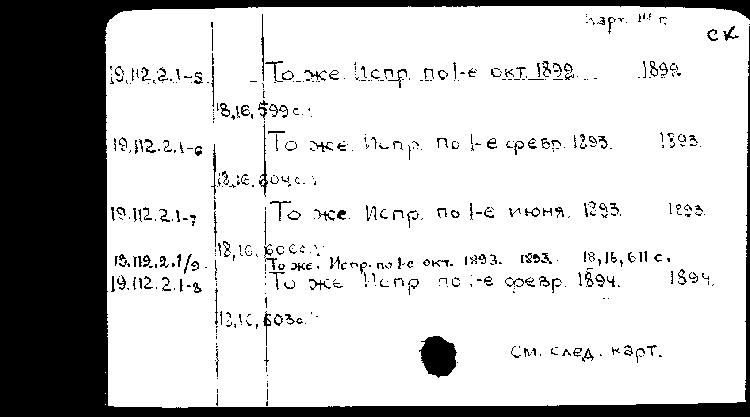 Карт. III г.
СК
19.112.2.1-5 То же. Испр. по 1-е окт. 1892. 1892.
18,16,599 с.
19.112.2.1-6 То же. Испр. по 1-е февр. 1893. 1893.
18,16,604 с.
19.112.2.1-7 То же. Испр. по 1-е июня. 1893. 1893.
18,16,606 с.
19.112.2.1/9 То же. Испр. по 1-е окт. 1893. 1893. 18,16,611 с.
19.112.2.1-8 То же Испр по 1-е февр. 1894. 1894.
18,16,603 с.
См. след. карт.